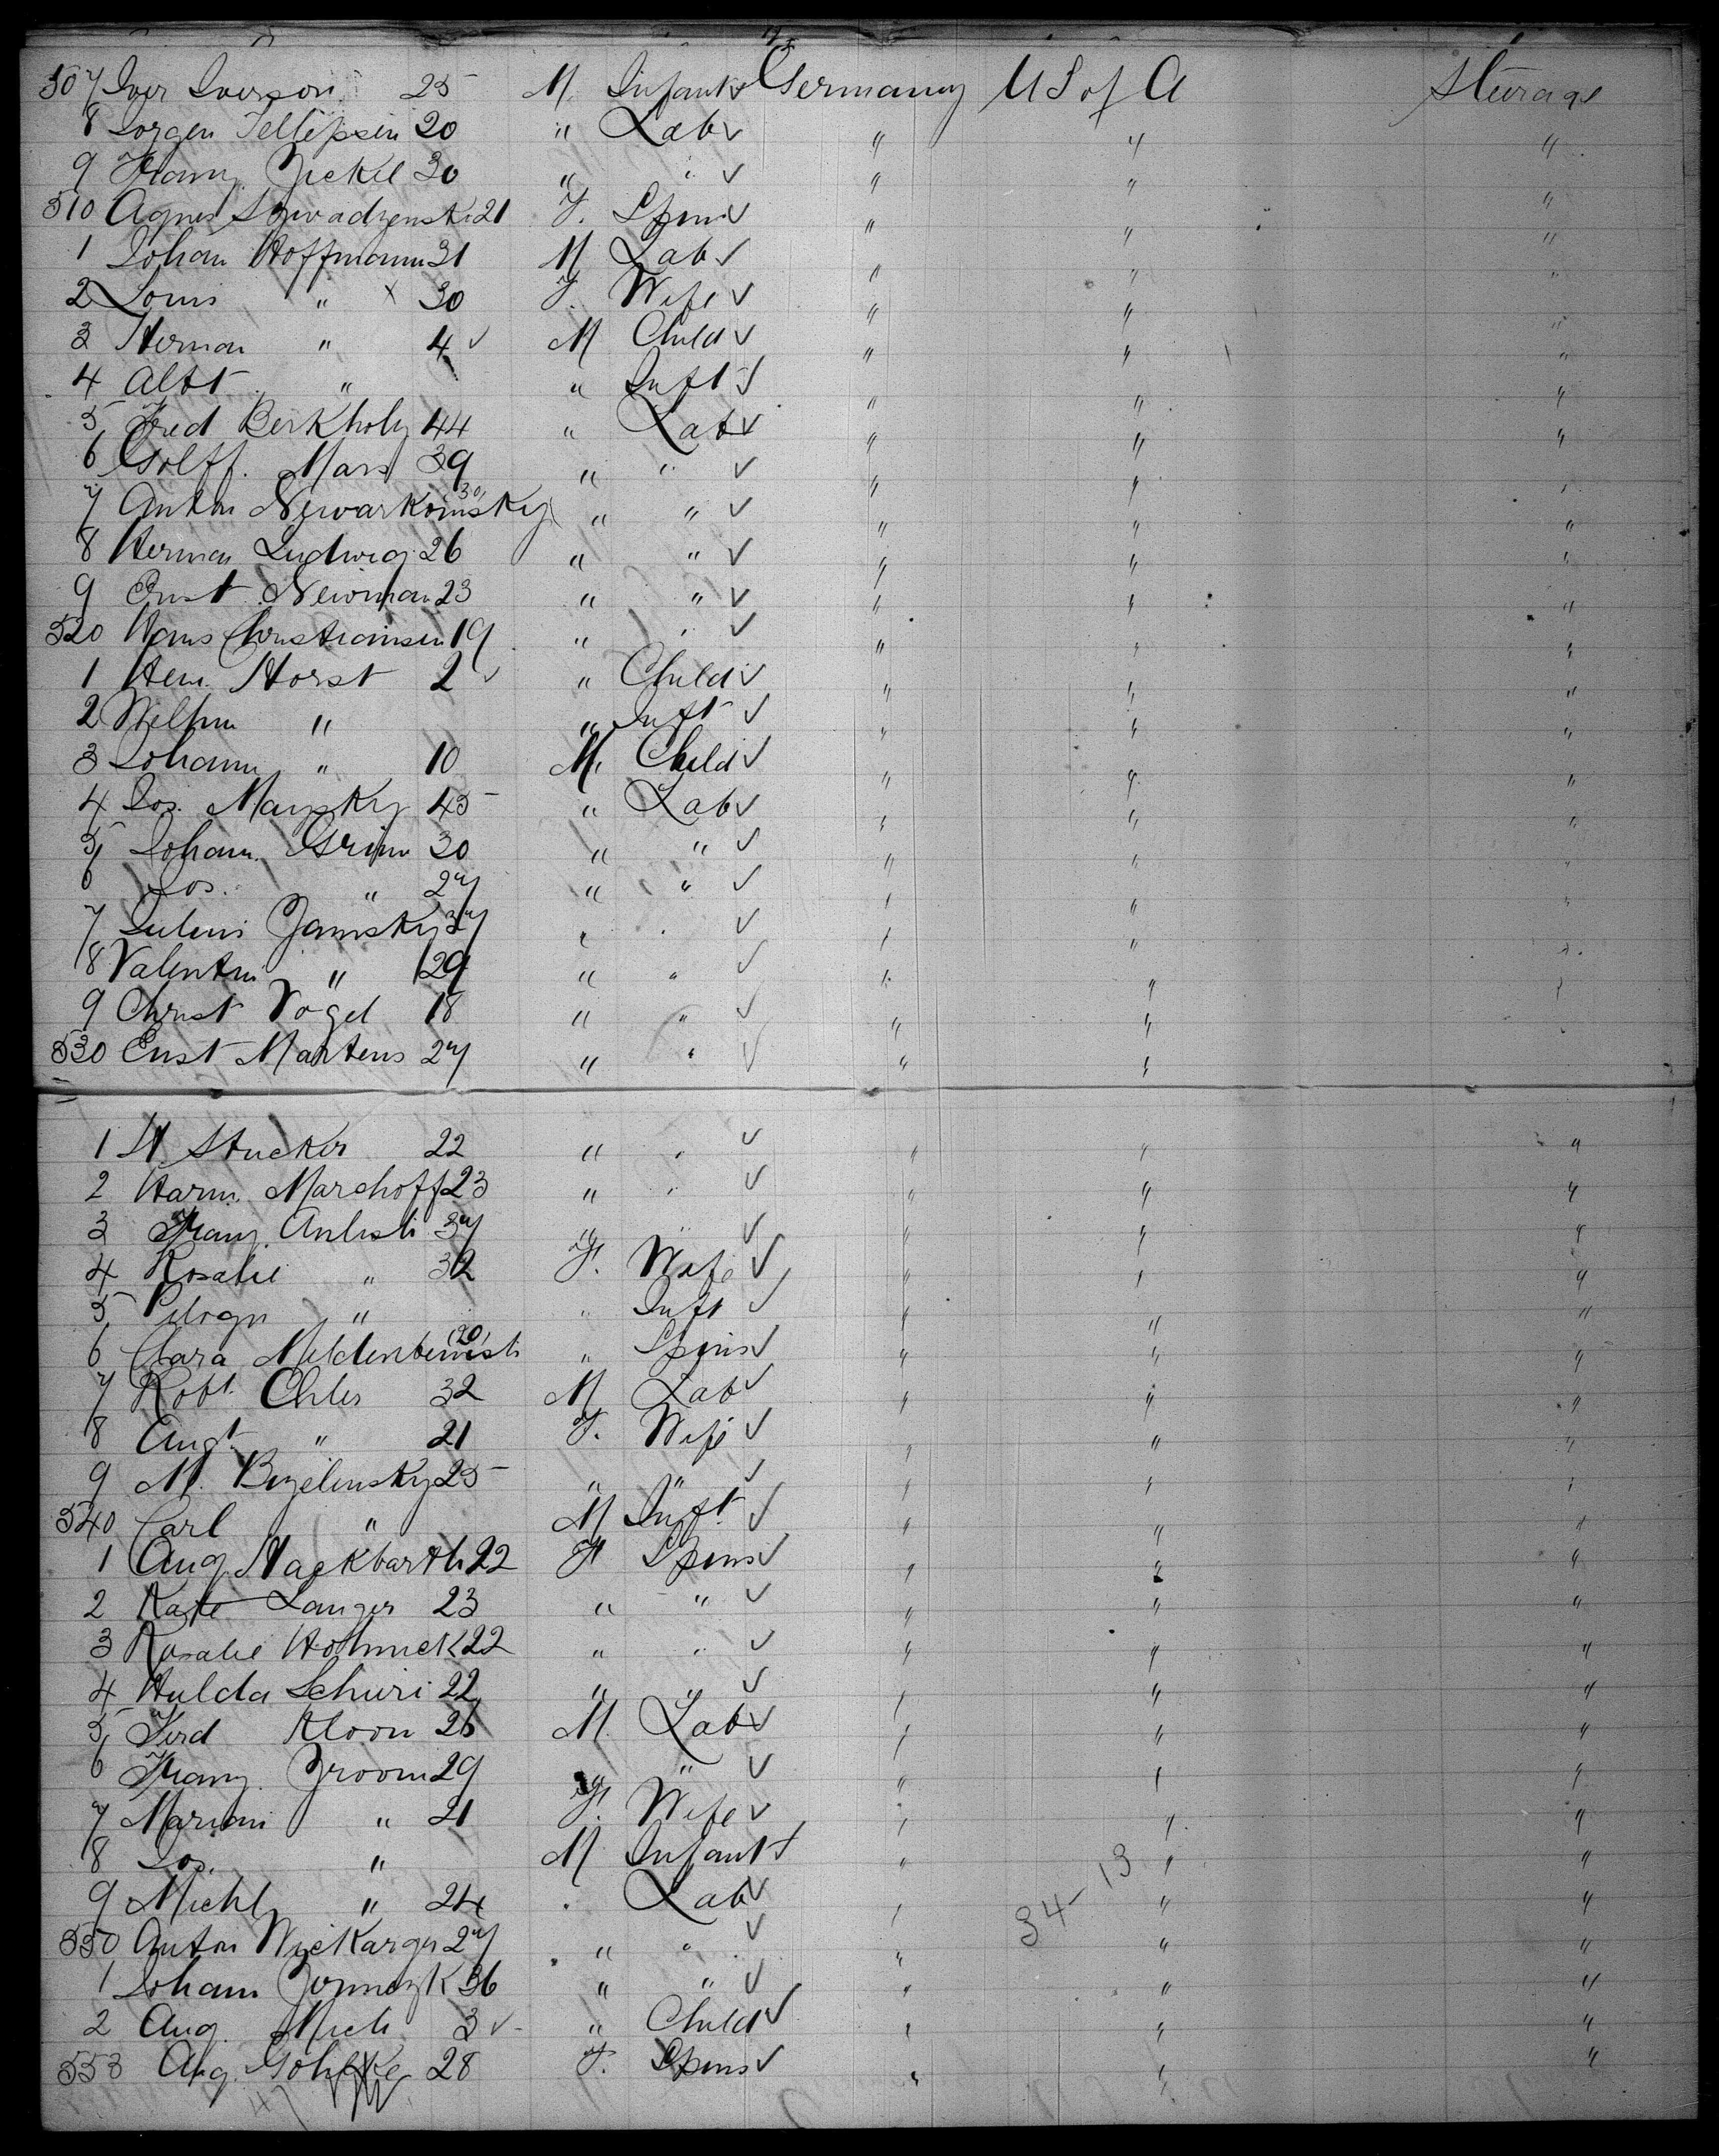 507 Iver Iverson 25 M Infant ✓ Germany U S of A Steerage
8 Jorgen Tellepsen 20 " Lab ✓ " " "
9 Franz Jeckel 30 " " ✓ " " "
510 Agnes 21 F. Spins ✓ " " "
1 Johan Hoffmann 31 M Lab ✓ " " "
2 Louis " x 30 F. Wife ✓ " " "
3 Herman " 4 ✓ M Child ✓ " " "
4 Albt " " Inft ✓ " " "
5 Fred Berkholz 44 " Lab ✓ " " "
6 Golff. Mars 39 " " ✓ " " "
7 Anton 30 " " ✓ " " "
8 Herman Ludwig 26 " " ✓ " " "
9 Ernst Newman 23 " " ✓ " " "
520 Hans Christiansen 19 " " ✓ " " "
1 Hen. Horst 2 ✓ " Child ✓ " " "
2 Wilhm " " Inft ✓ " " "
3 Johann " 10 M. Child ✓ " " "
4 Jos. Maysky 45 " Lab ✓ " " "
5 Johann. Grim 30 " " ✓ " " "
6 Jos. " 27 " " ✓ " " "
7 Julius Jamsky 37 " " ✓ " " "
8 Valentin " 29 " " ✓ " " "
9 Christ Vogel 18 " " ✓ " " "
530 Ernst Martens 27 " " ✓ " " "
1 H. Stucker 22 " " ✓ " " "
2 Harm. Marchoff 23 " " ✓ " " "
3 Franz 37 " " ✓ " " "
4 Rosalie " 32 F. Wife ✓ " " "
5 " " Inft ✓ " " "
6 Clara 20 " Spins ✓ " " "
7 Robt. Ehler 32 M Lab ✓ " " "
8 Augt. " 21 F. Wife ✓ " " "
9 M. Bezelinsky 25 " " ✓ " " "
540 Carl " M Inft. ✓ " " "
1 Aug. Hackbarth 22 F Spins ✓ " " "
2 Kate Langer 23 " " ✓ " " "
3 Rosalie 22 " " ✓ " " "
4 Hulda Schuri 22 " " ✓ " " "
5 Ferd Kloon 26 M. Lab ✓ " " "
6 Franz. Groom 29 " " ✓ " " "
7 " 21 F. Wife ✓ " " "
8 Jos. " M Infant ✓ " " "
9 Michl " 24 " Lab ✓ " 34-13 " "
550 Anton 27 " " ✓ " " "
1 Johann 36 " " ✓ " " "
2 Aug. Mich 3 ✓ " Child ✓ " " "
553 Aug. Gohlke 28 F. Spins ✓ " " "